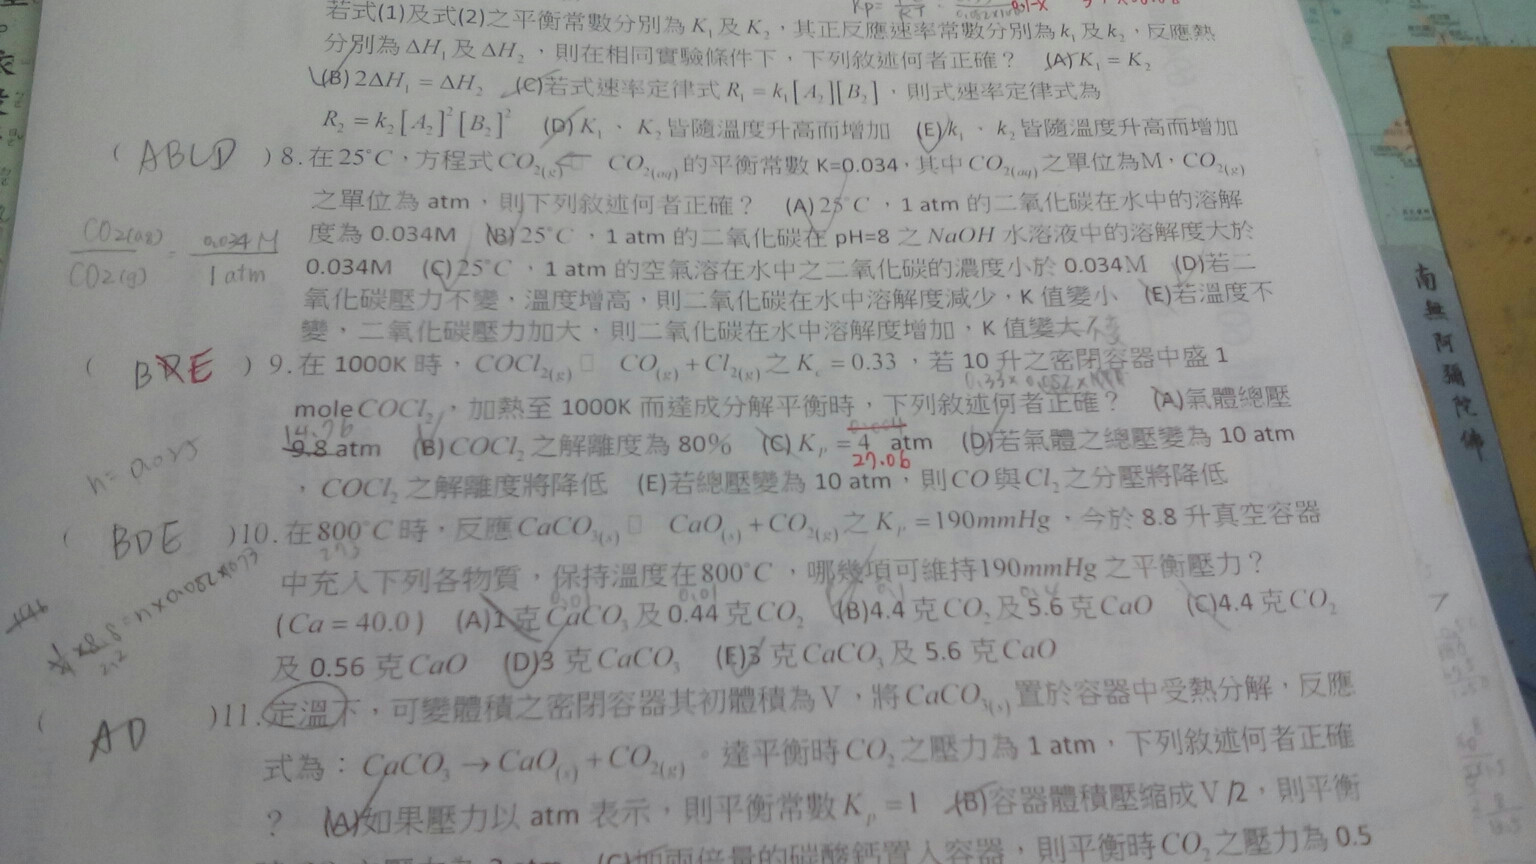 若式(1)及式(2)之平衡常數分別為K₁及K₂，其正反應速率常數分別為k₁及k₂，反應熱
分別為ΔH₁及ΔH₂，則在相同實驗條件下，下列敘述何者正確？ (A)K₁=K₂
(B)2ΔH₁=ΔH₂ (C)若式速率定律式R₁=k₁[A₂][B₂]，則式速率定律式為
R₂=k₂[A₂]²[B₂]² (D)K₁、K₂皆隨溫度升高而增加 (E)k₁、k₂皆隨溫度升高而增加
( ABCD )8.在25°C，方程式CO₂(g) ⇐ CO₂(aq)的平衡常數K=0.034，其中CO₂(aq)之單位為M，CO₂(g)
之單位為atm，則下列敘述何者正確？ (A)25°C，1 atm的二氧化碳在水中的溶解
CO₂(aq)/CO₂(g) = 0.034M/1atm
度為0.034M (B)25°C，1 atm的二氧化碳在pH=8之NaOH水溶液中的溶解度大於
0.034M (C)25°C，1 atm的空氣溶在水中之二氧化碳的濃度小於0.034M (D)若二
氧化碳壓力不變，溫度增高，則二氧化碳在水中溶解度減少，K值變小 (E)若溫度不
變，二氧化碳壓力加大，則二氧化碳在水中溶解度增加，K值變大 不變
( BE )9.在1000K時，COCl₂(g) □ CO(g)+Cl₂(g)之Kc=0.33，若10升之密閉容器中盛1
0.33×0.082×1000
mole COCl₂，加熱至1000K而達成分解平衡時，下列敘述何者正確？ (A)氣體總壓
14.76
9.8 atm (B)COCl₂之解離度為80% (C)Kp=4 atm (D)若氣體之總壓變為10 atm
27.06
，COCl₂之解離度將降低 (E)若總壓變為10 atm，則CO與Cl₂之分壓將降低
( BDE )10.在800°C時，反應CaCO₃(s) □ CaO(s)+CO₂(g)之Kp=190mmHg，今於8.8升真空容器
273
中充入下列各物質，保持溫度在800°C，哪幾項可維持190mmHg之平衡壓力？
(Ca=40.0) (A)1克CaCO₃及0.44克CO₂ (B)4.4克CO₂及5.6克CaO (C)4.4克CO₂
及0.56克CaO (D)3克CaCO₃ (E)3克CaCO₃及5.6克CaO
( AD )11.定溫下，可變體積之密閉容器其初體積為V，將CaCO₃(s)置於容器中受熱分解，反應
式為：CaCO₃→CaO(s)+CO₂(g)。達平衡時CO₂之壓力為1 atm，下列敘述何者正確
？ (A)如果壓力以atm表示，則平衡常數Kp=1 (B)容器體積壓縮成V/2，則平衡
(C)加兩倍量的碳酸鈣置入容器，則平衡時CO₂之壓力為0.5
南無阿彌陀佛